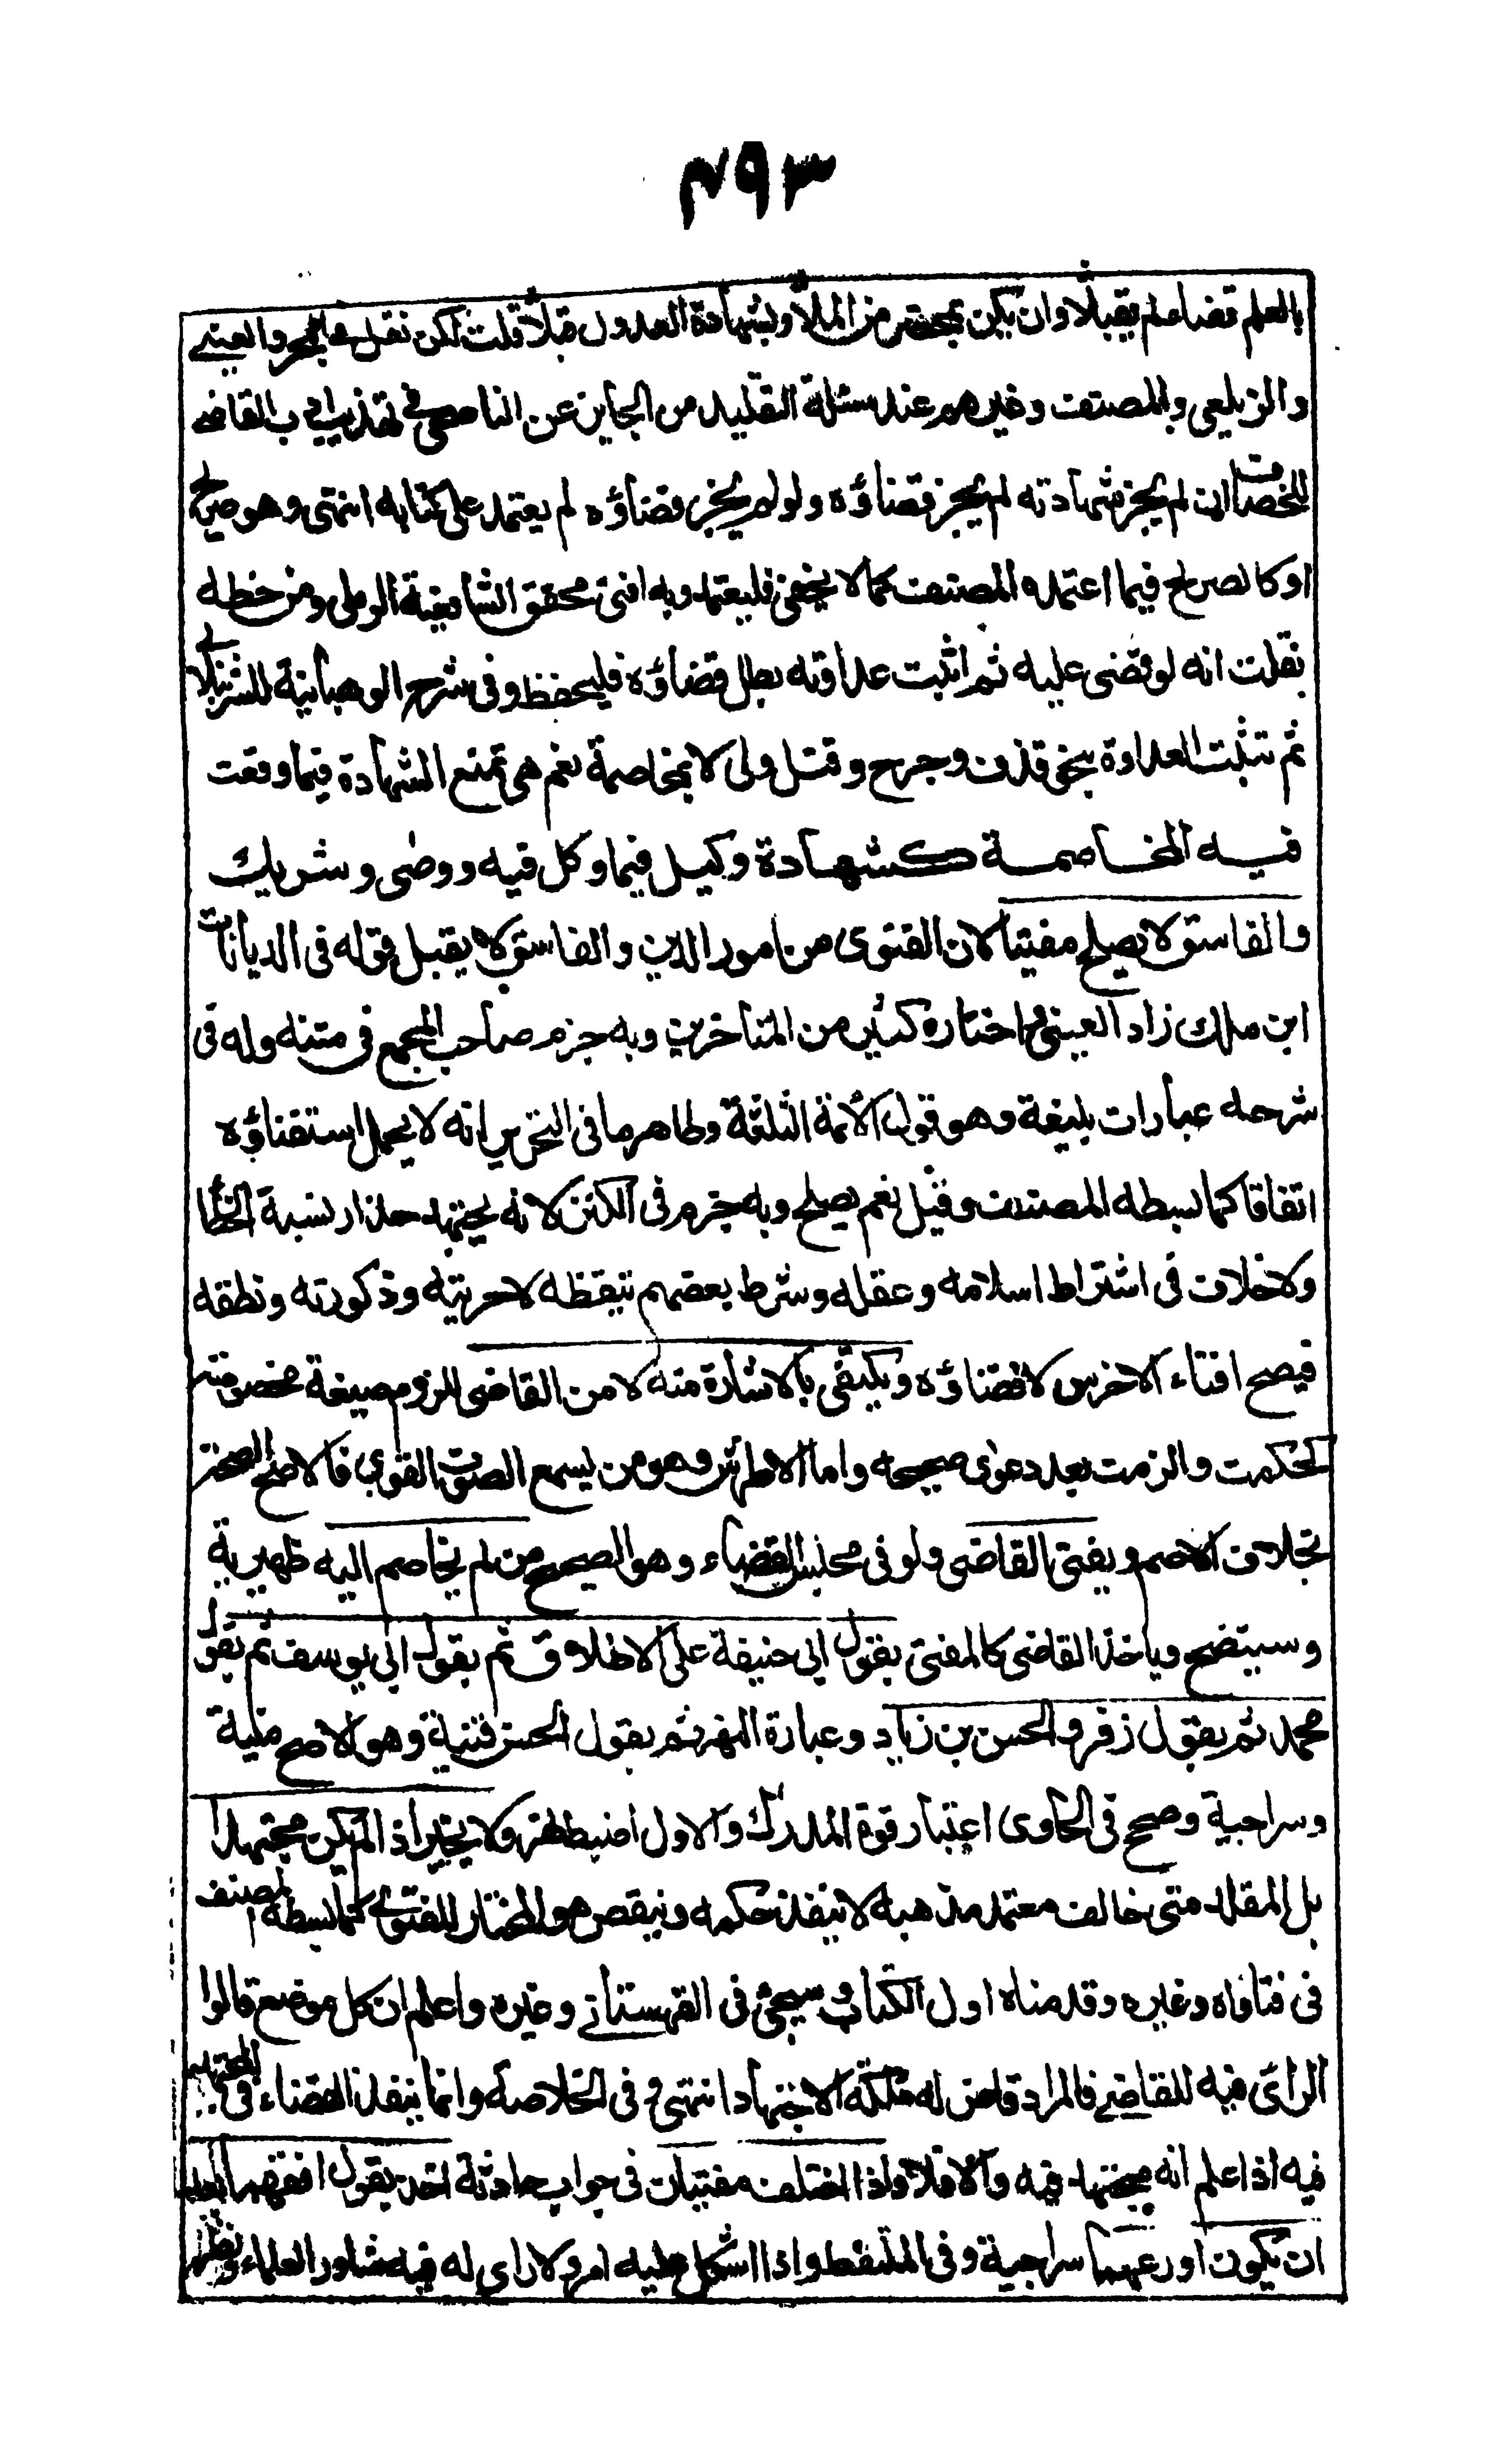 ٣٩٣
بالعلم قضا علم يقبلا وان يكن بمحضر من الملا وبشهادة العدول قبلا قلت لكن نقل في البحر والعيني
والزيلعي والمصنف وغيرهم عند مسئلة التقليد من الجاير عن الناصحي في تهذيب ادب القاضي
للخصاف ان لم يجز شهادته لم يجز قضاؤه ولو لم يجز قضاؤه لم يعتمد على كتابه انتهى وهو صريح
او كالصريح فيما اعتمده المصنف كما لا يخفى فليعتمد وبه افتى محقق الشافعية الرملي ومن خطه
نقلت انه لو قضى عليه ثم اثبت عداوته بطل قضاؤه فليحفظ وفي شرح الوهبانية للشرنبلالي
ثم تثبت العداوة بنحو قذف وجرح وقتل ولي لا بمخاصمة نعم هي تمنع الشهادة فيما وقعت
فيه المخاصمة كشهادة وكيل فيما وكل فيه ووصى وشريك
والفاسق لا يصلح مفتيا لان الفتوى من امور الدين والفاسق لا يقبل قوله في الديانات
ابن ملك زاد العيني واختاره كثير من المتاخرين وبه جزم صاحب المجمع في متنه وله في
شرحه عبارات بليغة وهو قول الأئمة الثلثة وظاهر ما في التحرير انه لا يحل استفتاؤه
اتفاقا كما بسطه المصنف وقيل نعم يصلح وبه جزم في الكنز لانه يجتهد حذار نسبة الخطأ
ولا خلاف في اشتراط اسلامه وعقله وشرط بعضهم تيقظه لا حريته وذكورته ونطقه
فيصح افتاء الاخرس لا قضاؤه ويكتفي بالاشارة منه لا من القاضي للزوم صيغة مخصوصة
كحكمت والزمت بعد دعوى صحيحة واما الاطرش وهو من يسمع الصوت القوي فالاصح الصحة
بخلاف الاصم ويفتي القاضي ولو في مجلس القضاء وهو الصحيح من لم يخاصم اليه ظهيرية
وسيتضح وياخذ القاضي كالمفتي بقول ابي حنيفة على الاطلاق ثم بقول ابي يوسف ثم بقول
محمد ثم بقول زفر والحسن بن زياد وعبارة النهر ثم بقول الحسن قنية وهو الاصح منية
وسراجية وصحح في الحاوى اعتبار قوة المدرك والاول اضبط نهر ولا يخير اذا لم يكن مجتهدا
بل المقلد متى خالف معتمد مذهبه لا ينفذ حكمه وينقض هو المختار للفتوى كما بسطه المصنف
في فتاواه وغيره وقدمناه اول الكتاب وسيجئ وفي القهستاني وغيره واعلم ان كل موضع قالوا
الرأى فيه للقاضي فالمراد قاض له ملكة الاجتهاد انتهى وفي الخلاصة وانما ينفذ القضاء في المجتهد
فيه اذا علم انه مجتهد فيه والا فلا واذا اختلف مفتيان في جواب حادثة اخذ بقول افقههما بعد
ان يكون اورعهما سراجية وفي الملتقط واذا اشكل عليه امر ولا راي له فيه شاور العلماء ونظر